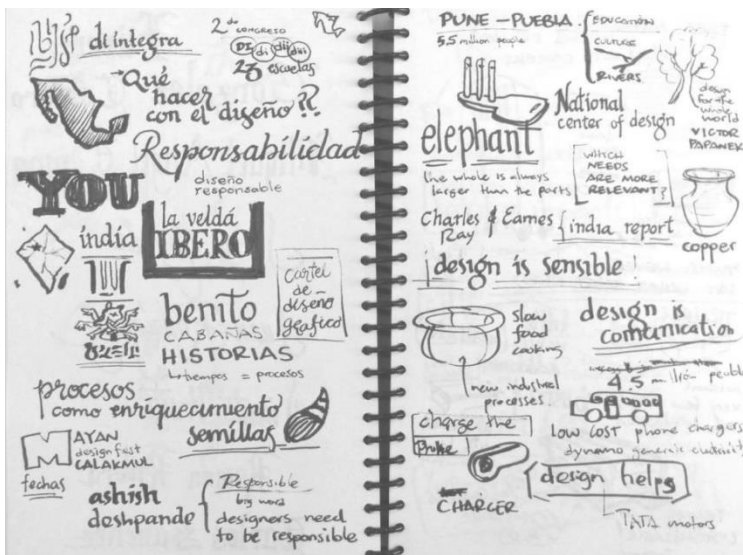 di integra
2do CONGRESO
DI di diidi
28 escuelas
¿Qué
hacer
con el diseño??
Responsabilidad
YOU
diseño
responsable
la veldá
IBERO
india
Cartel
de
diseño
gráfico
benito
CABAÑAS
HISTORIAS
tiempos = procesos
procesos
como enriquecimiento
semillas
MAYAN
designfest
CALAKMUL
fechas
ashish
deshpande
Responsible
big word
designers need
to be responsible
PUNE — PUEBLA
5.5 million people
EDUCATION
CULTURE
RIVERS
design
for the
whole
world
VICTOR
PAPANEK
elephant
National
center of design
the whole is always
larger than the parts
WHICH
NEEDS
ARE MORE
RELEVANT?
Charles & Eames
Ray
india report
copper
¡design is sensible!
slow
food
cooking
new industrial
processes
design is
comunication
4.5 million
charge the
CHARGER
LOW COST phone chargers
dynamo generate
design helps
TATA motors